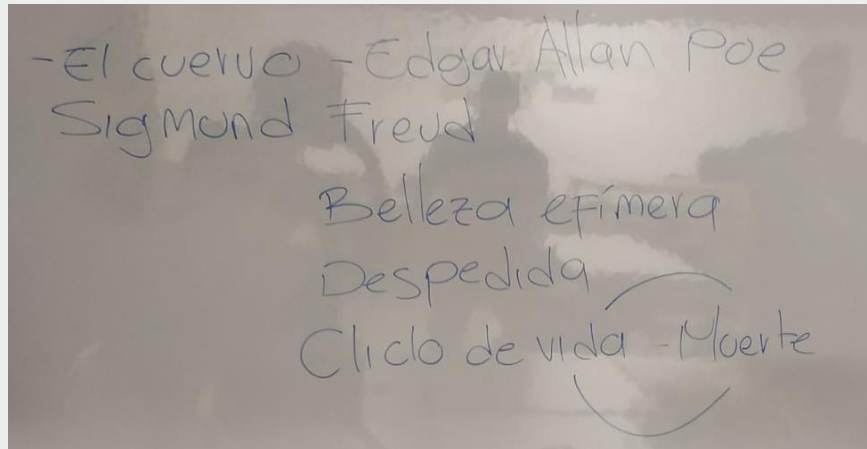 -El cuervo - Edgar Allan Poe
Sigmund Freud
Belleza efímera
Despedida
Cliclo de vida - Muerte